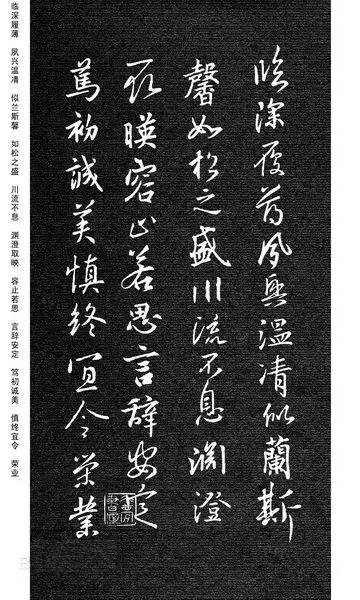 臨深履薄夙興溫凊似蘭斯
馨如松之盛川流不息淵澄
取暎容止若思言辭安定
篤初誠美慎終宜令榮業
临深履薄 夙兴温凊 似兰斯馨 如松之盛 川流不息 渊澄取映 容止若思 言辞安定 笃初诚美 慎终宜令 荣业